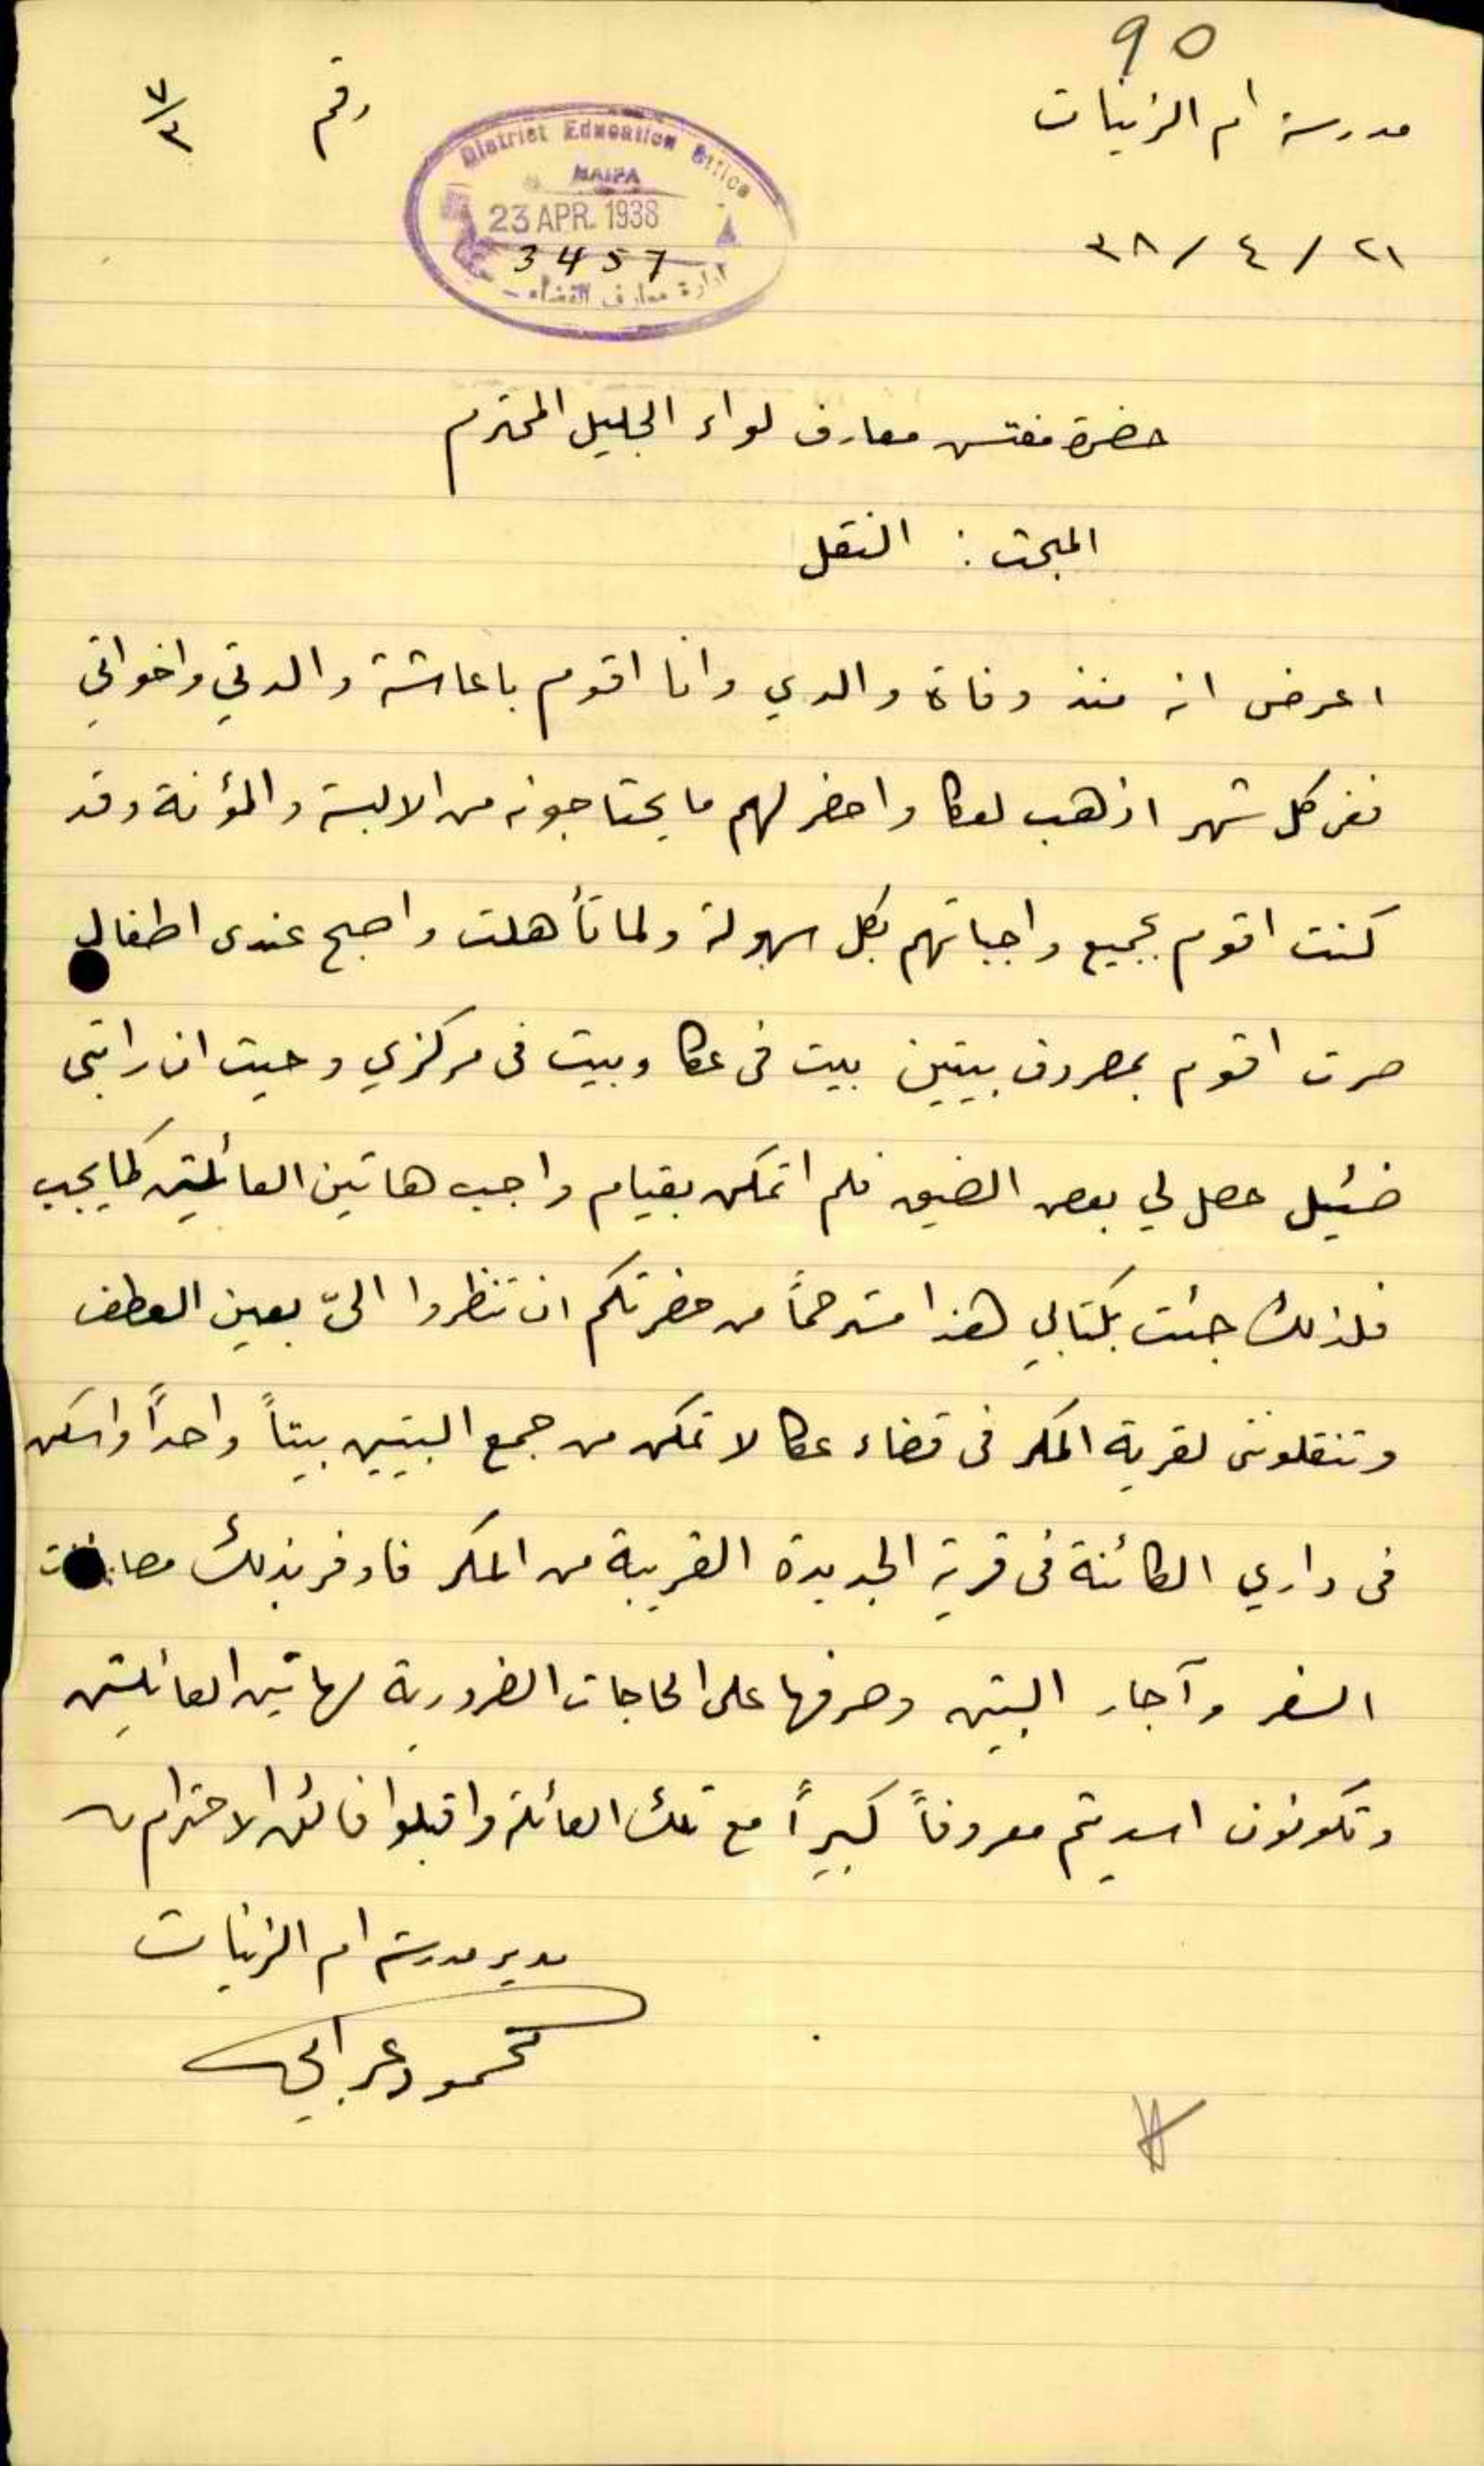 90
مدرسة ام الزينات
رقم ٧/٣
District Education Office
HAIFA
23 APR. 1938
3457
ادارة معارف القضاء
٢١ / ٤ / ٣٨
حضرة مفتش معارف لواء الجليل المحترم
المبحث : النقل
اعرض انه منذ وفاة والدي وانا اقوم باعاشة والدتي واخواتي
ففي كل شهر اذهب لعكا واحضر لهم ما يحتاجونه من الالبسة والمؤنة وقد
كنت اقوم بجميع واجباتهم بكل سهولة ولما تأهلت واصبح عندى اطفال
صرت اقوم بمصروف بيتين بيت في عكا وبيت في مركزي وحيث ان راتبي
ضئيل حصل لي بعض الضيق فلم اتمكن بقيام واجب هاتين العائلتين كما يجب
فلذلك جئت بكتابي هذا مسترحماً من حضرتكم ان تنظروا اليّ بعين العطف
وتنقلونني لقرية المكر في قضاء عكا لاتمكن من جمع البيتين بيتاً واحداً واسكن
في داري الكائنة في قرية الجديدة القريبة من المكر فاوفر بذلك
السفر وآجار البيتين وصرفها على الحاجات الضرورية لهاتين العائلتين
وتكونون اسديتم معروفاً كبيراً مع تلك العائلة واقبلوا فائق الاحترام
مدير مدرسة ام الزينات
محمود عرابي